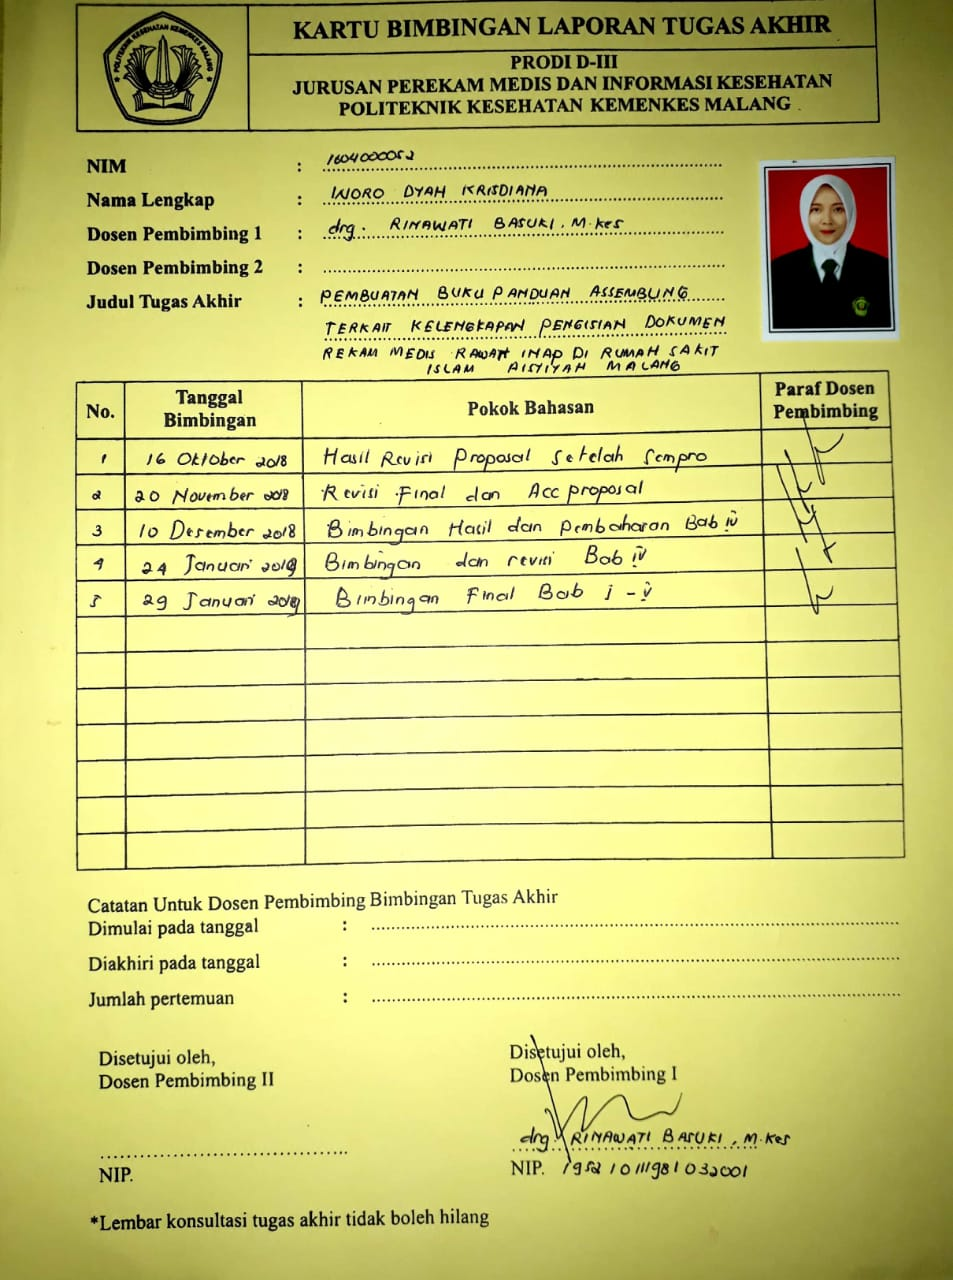 POLITEKNIK KESEHATAN KEMENKES MALANG
KARTU BIMBINGAN LAPORAN TUGAS AKHIR
PRODI D-III
JURUSAN PEREKAM MEDIS DAN INFORMASI KESEHATAN
POLITEKNIK KESEHATAN KEMENKES MALANG
NIM : 1604000052
Nama Lengkap : WORO DYAH KRISDIANA
Dosen Pembimbing 1 : drg. RINAWATI BASUKI, M.Kes
Dosen Pembimbing 2 :
Judul Tugas Akhir : PEMBUATAN BUKU PANDUAN ASSEMBLING
TERKAIT KELENGKAPAN PENGISIAN DOKUMEN
REKAM MEDIS RAWAT INAP DI RUMAH SAKIT
ISLAM AISYIYAH MALANG
No. Tanggal Bimbingan Pokok Bahasan Paraf Dosen Pembimbing
1 16 Oktober 2018 Hasil Revisi Proposal Setelah Sempro
2 20 November 2018 Revisi Final dan Acc proposal
3 10 Desember 2018 Bimbingan Hasil dan pembahasan Bab IV
4 24 Januari 2019 Bimbingan dan revisi Bab IV
5 29 Januari 2019 Bimbingan Final Bab I - V
Catatan Untuk Dosen Pembimbing Bimbingan Tugas Akhir
Dimulai pada tanggal :
Diakhiri pada tanggal :
Jumlah pertemuan :
Disetujui oleh,
Dosen Pembimbing II
NIP.
Disetujui oleh,
Dosen Pembimbing I
drg. RINAWATI BASUKI, M.Kes
NIP. 195210111981032001
*Lembar konsultasi tugas akhir tidak boleh hilang